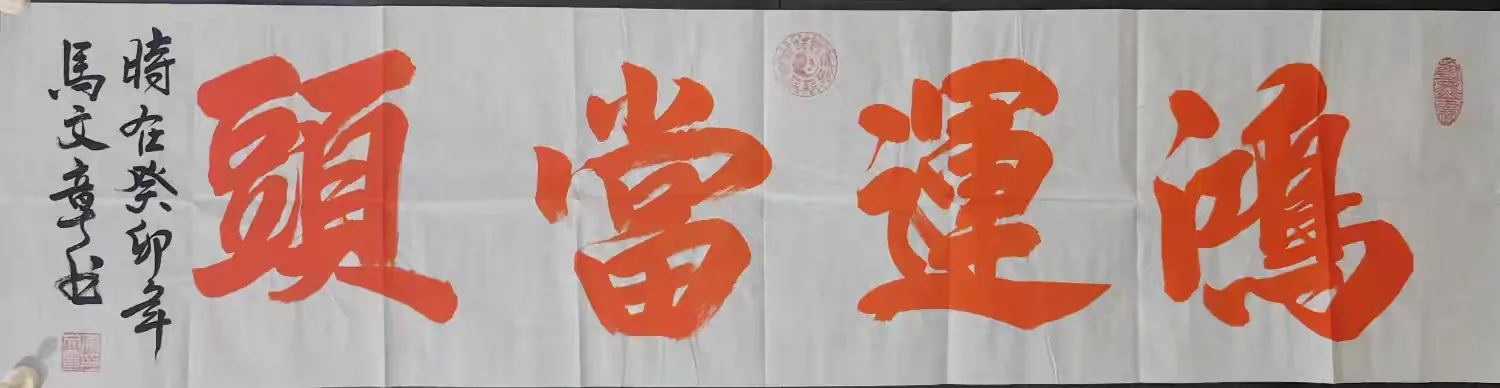 鴻運當頭
時在癸卯年
馬文章书